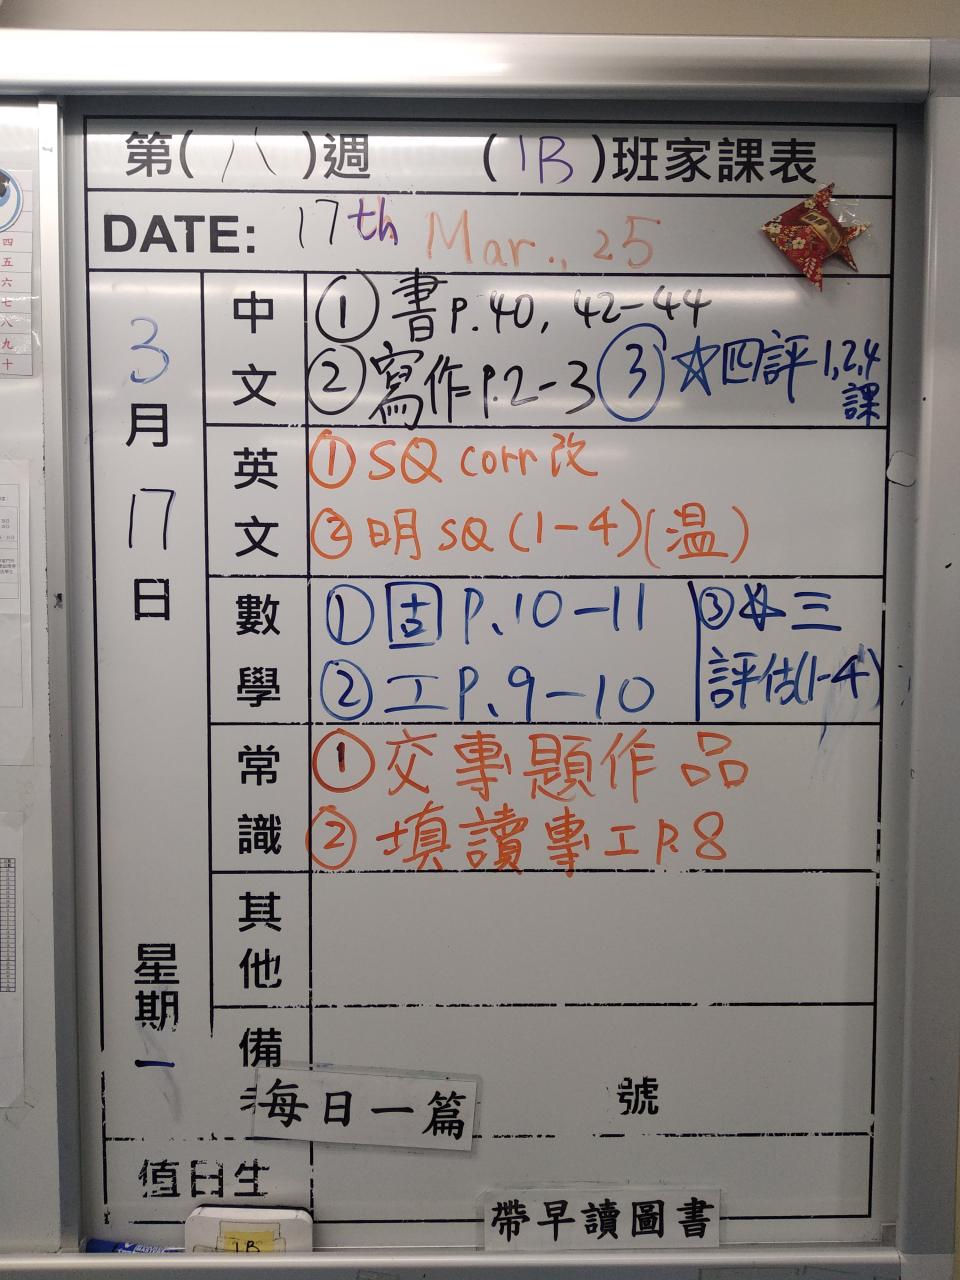 第(八)週 (1B)班家課表
DATE: 17th Mar., 25
3月17日
星期一
中文
① 書P.40, 42-44
② 寫作P.2-3 ③ ☆四評1,2,4課
英文
① SQ corr改
② 明SQ(1-4)(溫)
數學
① 固 P.10-11
② 工P.9-10
③ ☆三
評估(1-4)
常識
① 交專題作品
② 填讀專工P.8
其他
備
每日一篇
號
值日生
帶早讀圖書
1B
四
五
六
七
八
九
十